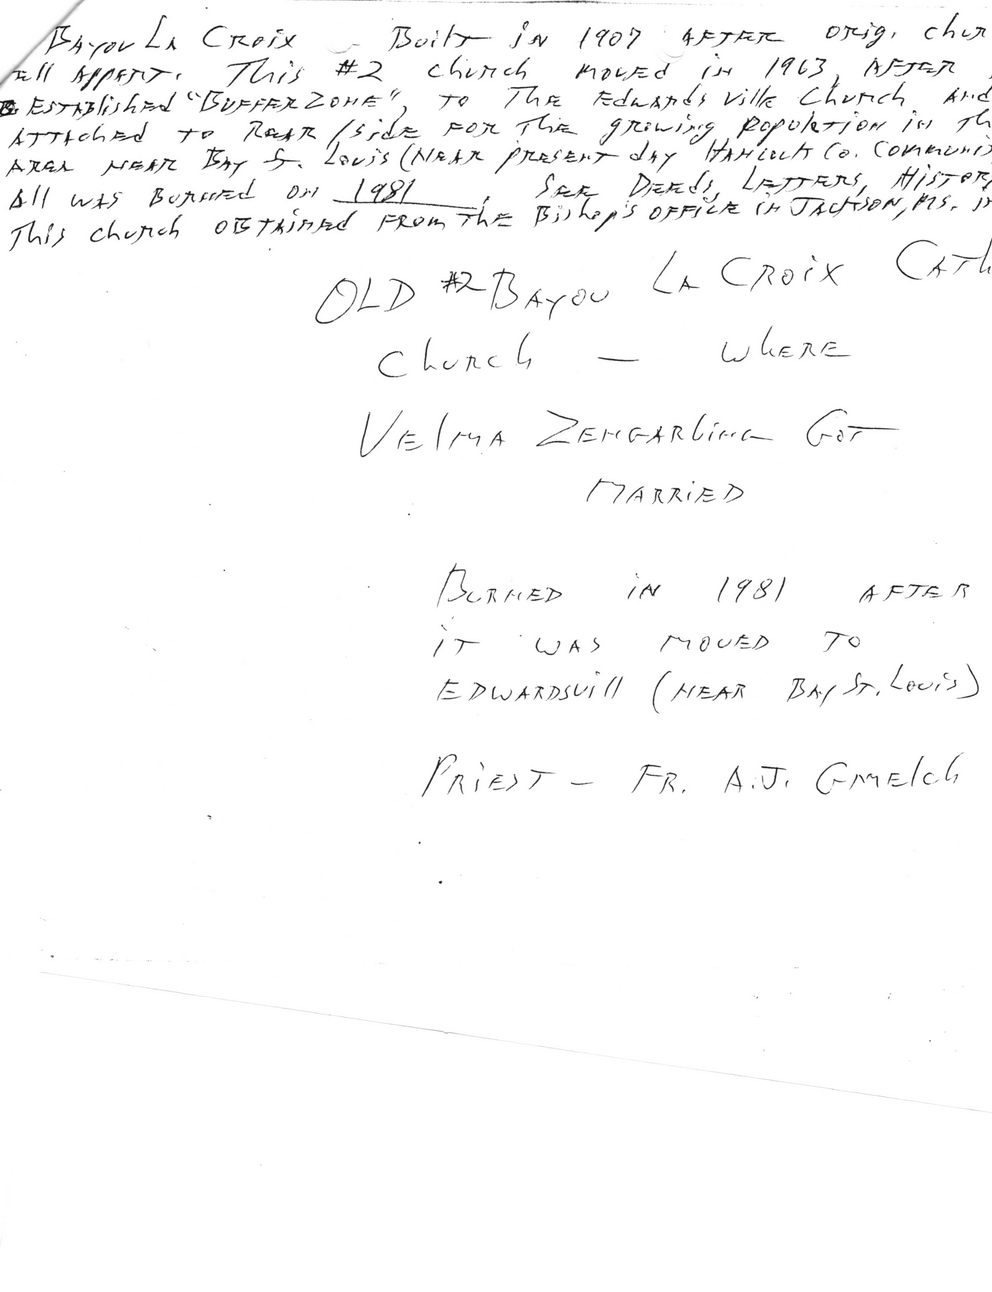 Bayou La Croix - Built in 1907 AFTER orig. chur
ell Appart. This #2 church moved in 1963, AFTER
ESTAblished "BUFFER ZONE", TO The Edwardsville Church And
ATTAched TO REAR/side FOR The growing population in Th
AREA NEAR BAY St. Louis (NEAR present day HANCOCK Co. Communi
All WAS BURNED ON 1981, SEE DEEDS, LETTERS, HISTORY
This church OBTAINED FROM THE Bishop's OFFICE in JACKSON, MS. in
OLD #2 BAYOU LA CROIX CATH
Church — WHERE
VELMA ZENGARLING GOT
MARRIED
BURNED IN 1981 AFTER
IT WAS MOVED TO
EDWARDSVILL (NEAR BAY ST. LOUIS)
PRIEST - FR. A.J. GMELCH